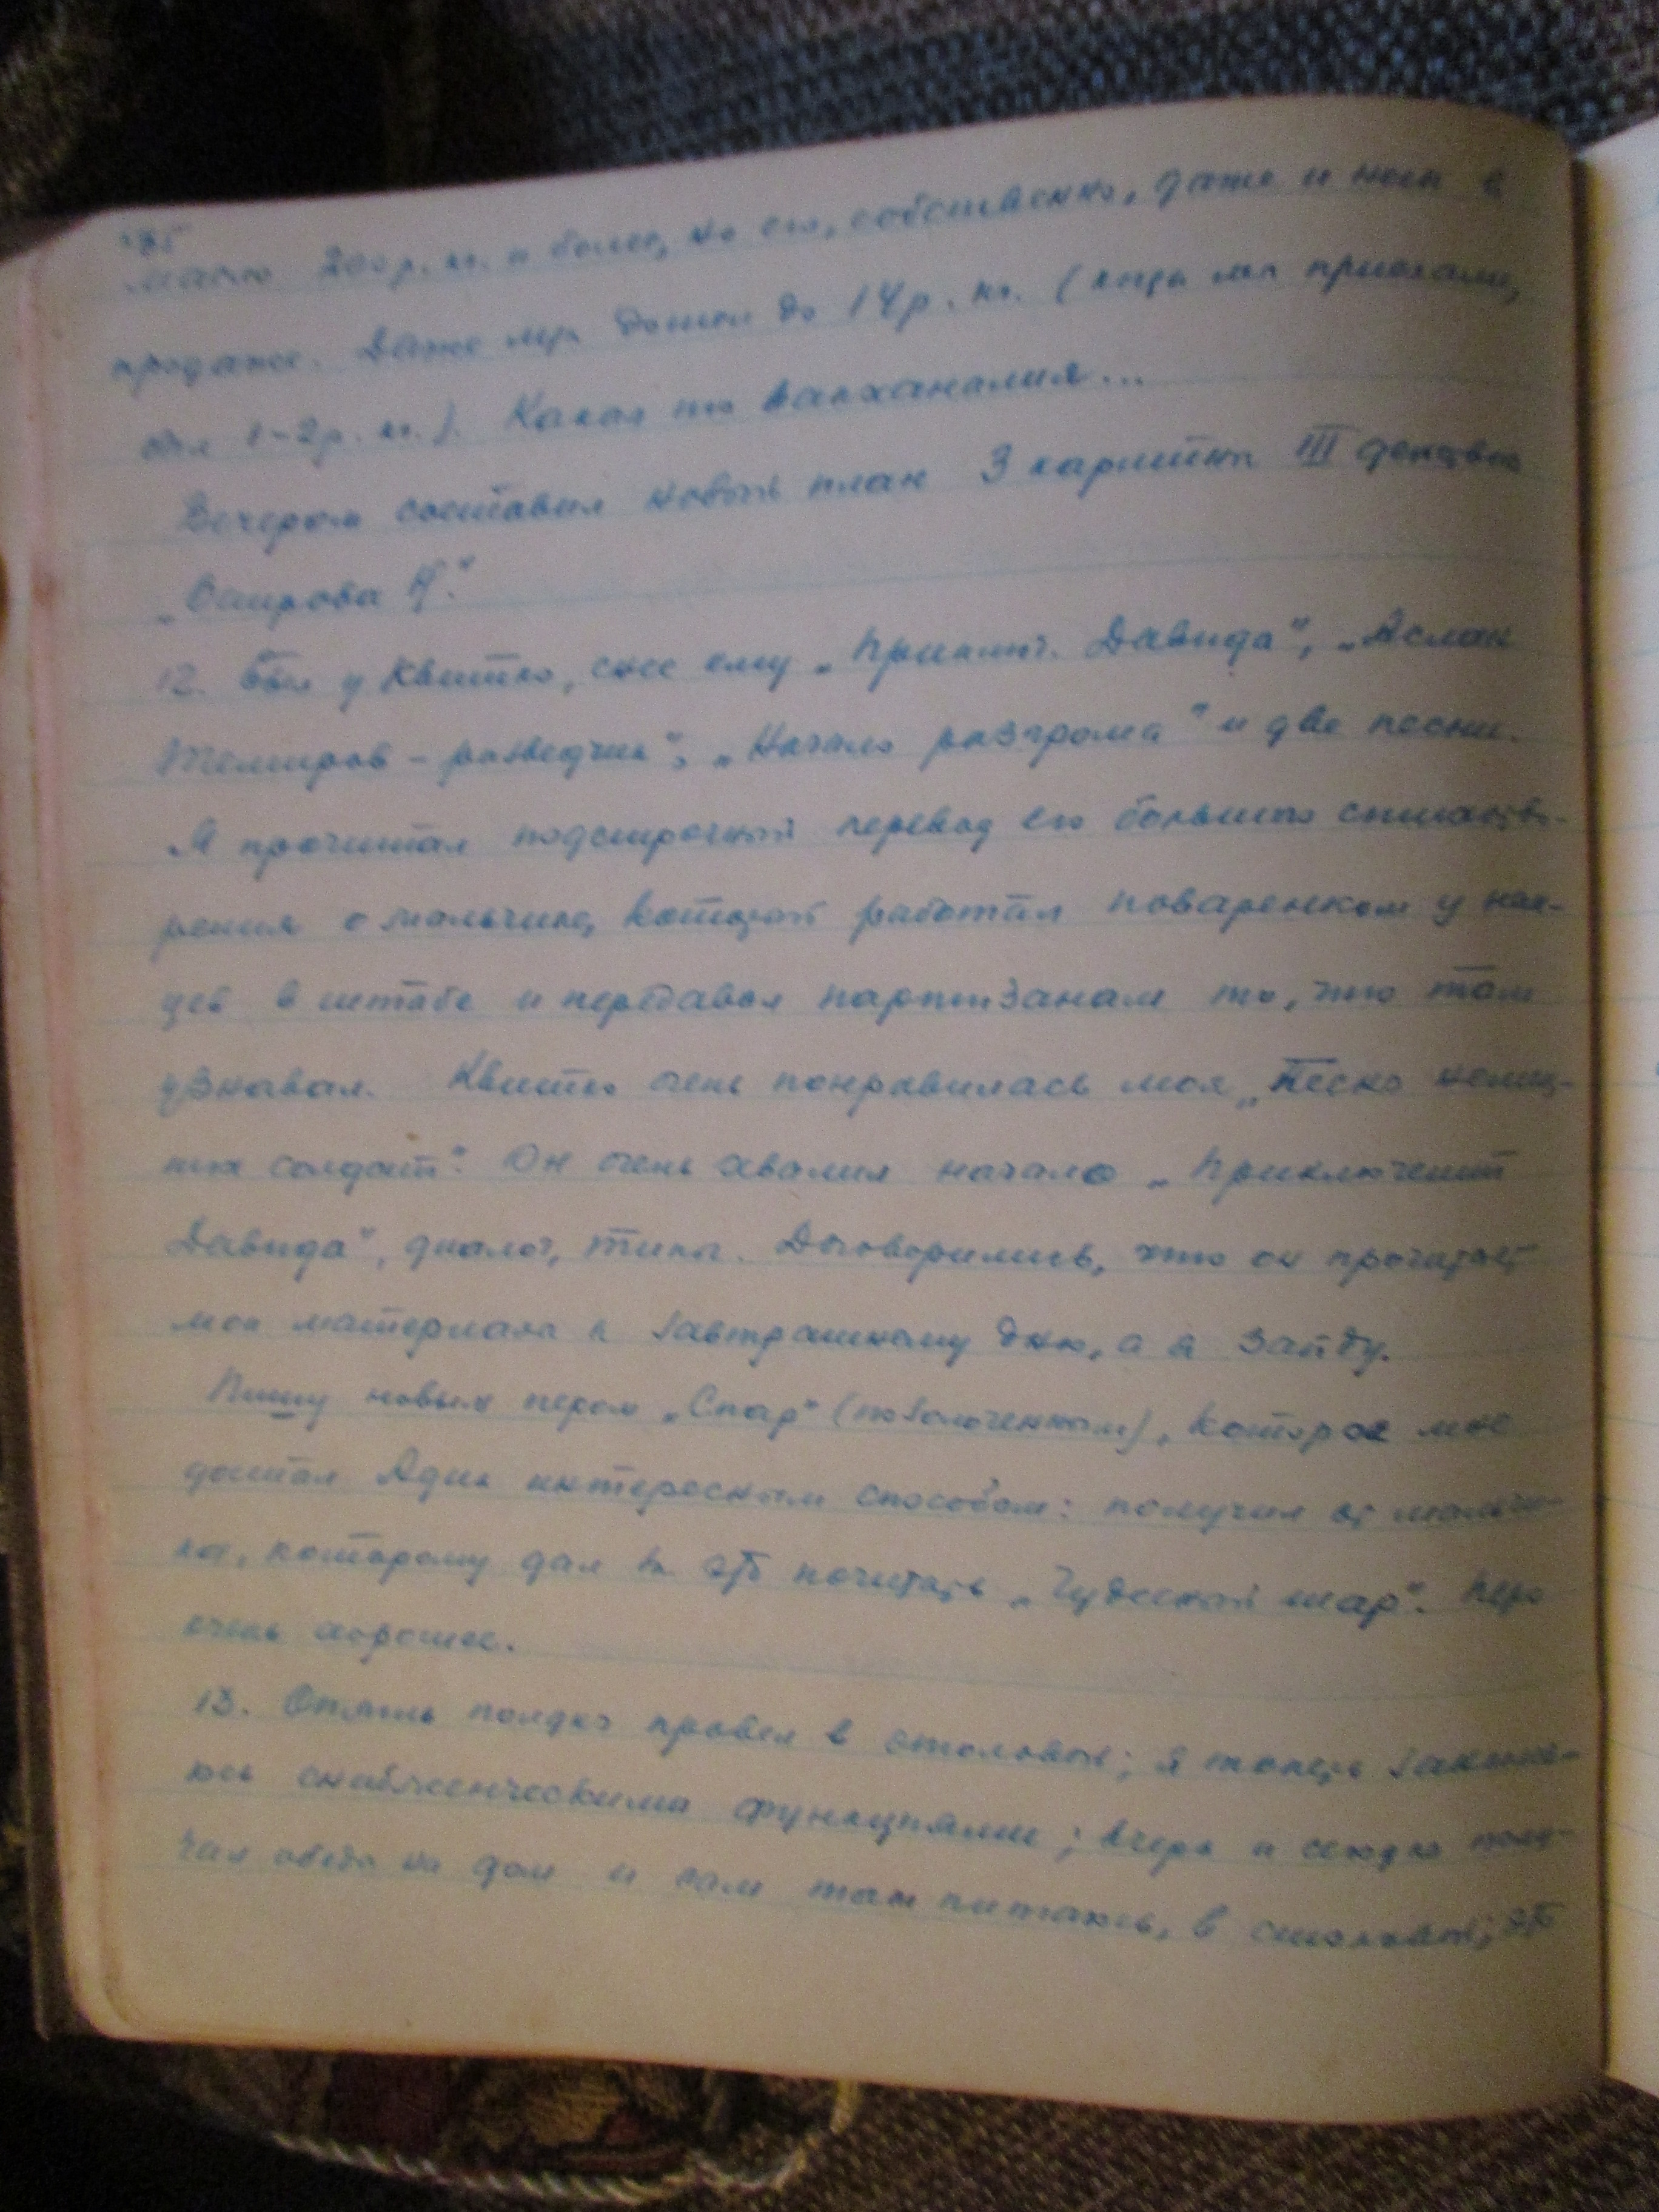 масло 200 р. кг. и более, но его, собственно, даже и нет в
продаже. Даже лук дошел до 14 р. кг. (когда мы приехали,
был 1-2 р. кг.). Какая то вакханалия...
Вечером составил новый план 3 картины III действия
„Острова
12. Был у Квитко, снес ему „Приключ. Давида", „Аслан
Темиров – разведчик", „Начало разгрома" и две песни.
Я прочитал подстрочный перевод его большого стихотво-
рения о мальчике, который работал поваренком у нем-
цев в штабе и передавал партизанам то, что там
узнавал. Квитко очень понравилась моя „Песня немец-
ких солдат". Он очень хвалил начало „Приключений
Давида", диалог, типы. Договорились, что он прочитает
мои материалы к завтрашнему дню, а я зайду.
Пишу новым пером „Спар" (позолоченным), которое мне
достал Адик интересным способом: получил от мальчи-
ка, которому дал за это почитать „Чудесный шар". Перо
очень хорошее.
13. Опять полдня провел в столовой; я теперь занима-
юсь снабженческими функциями; вчера и сегодня полу-
чал обеды на дом и сам там питаюсь, в столовой; это